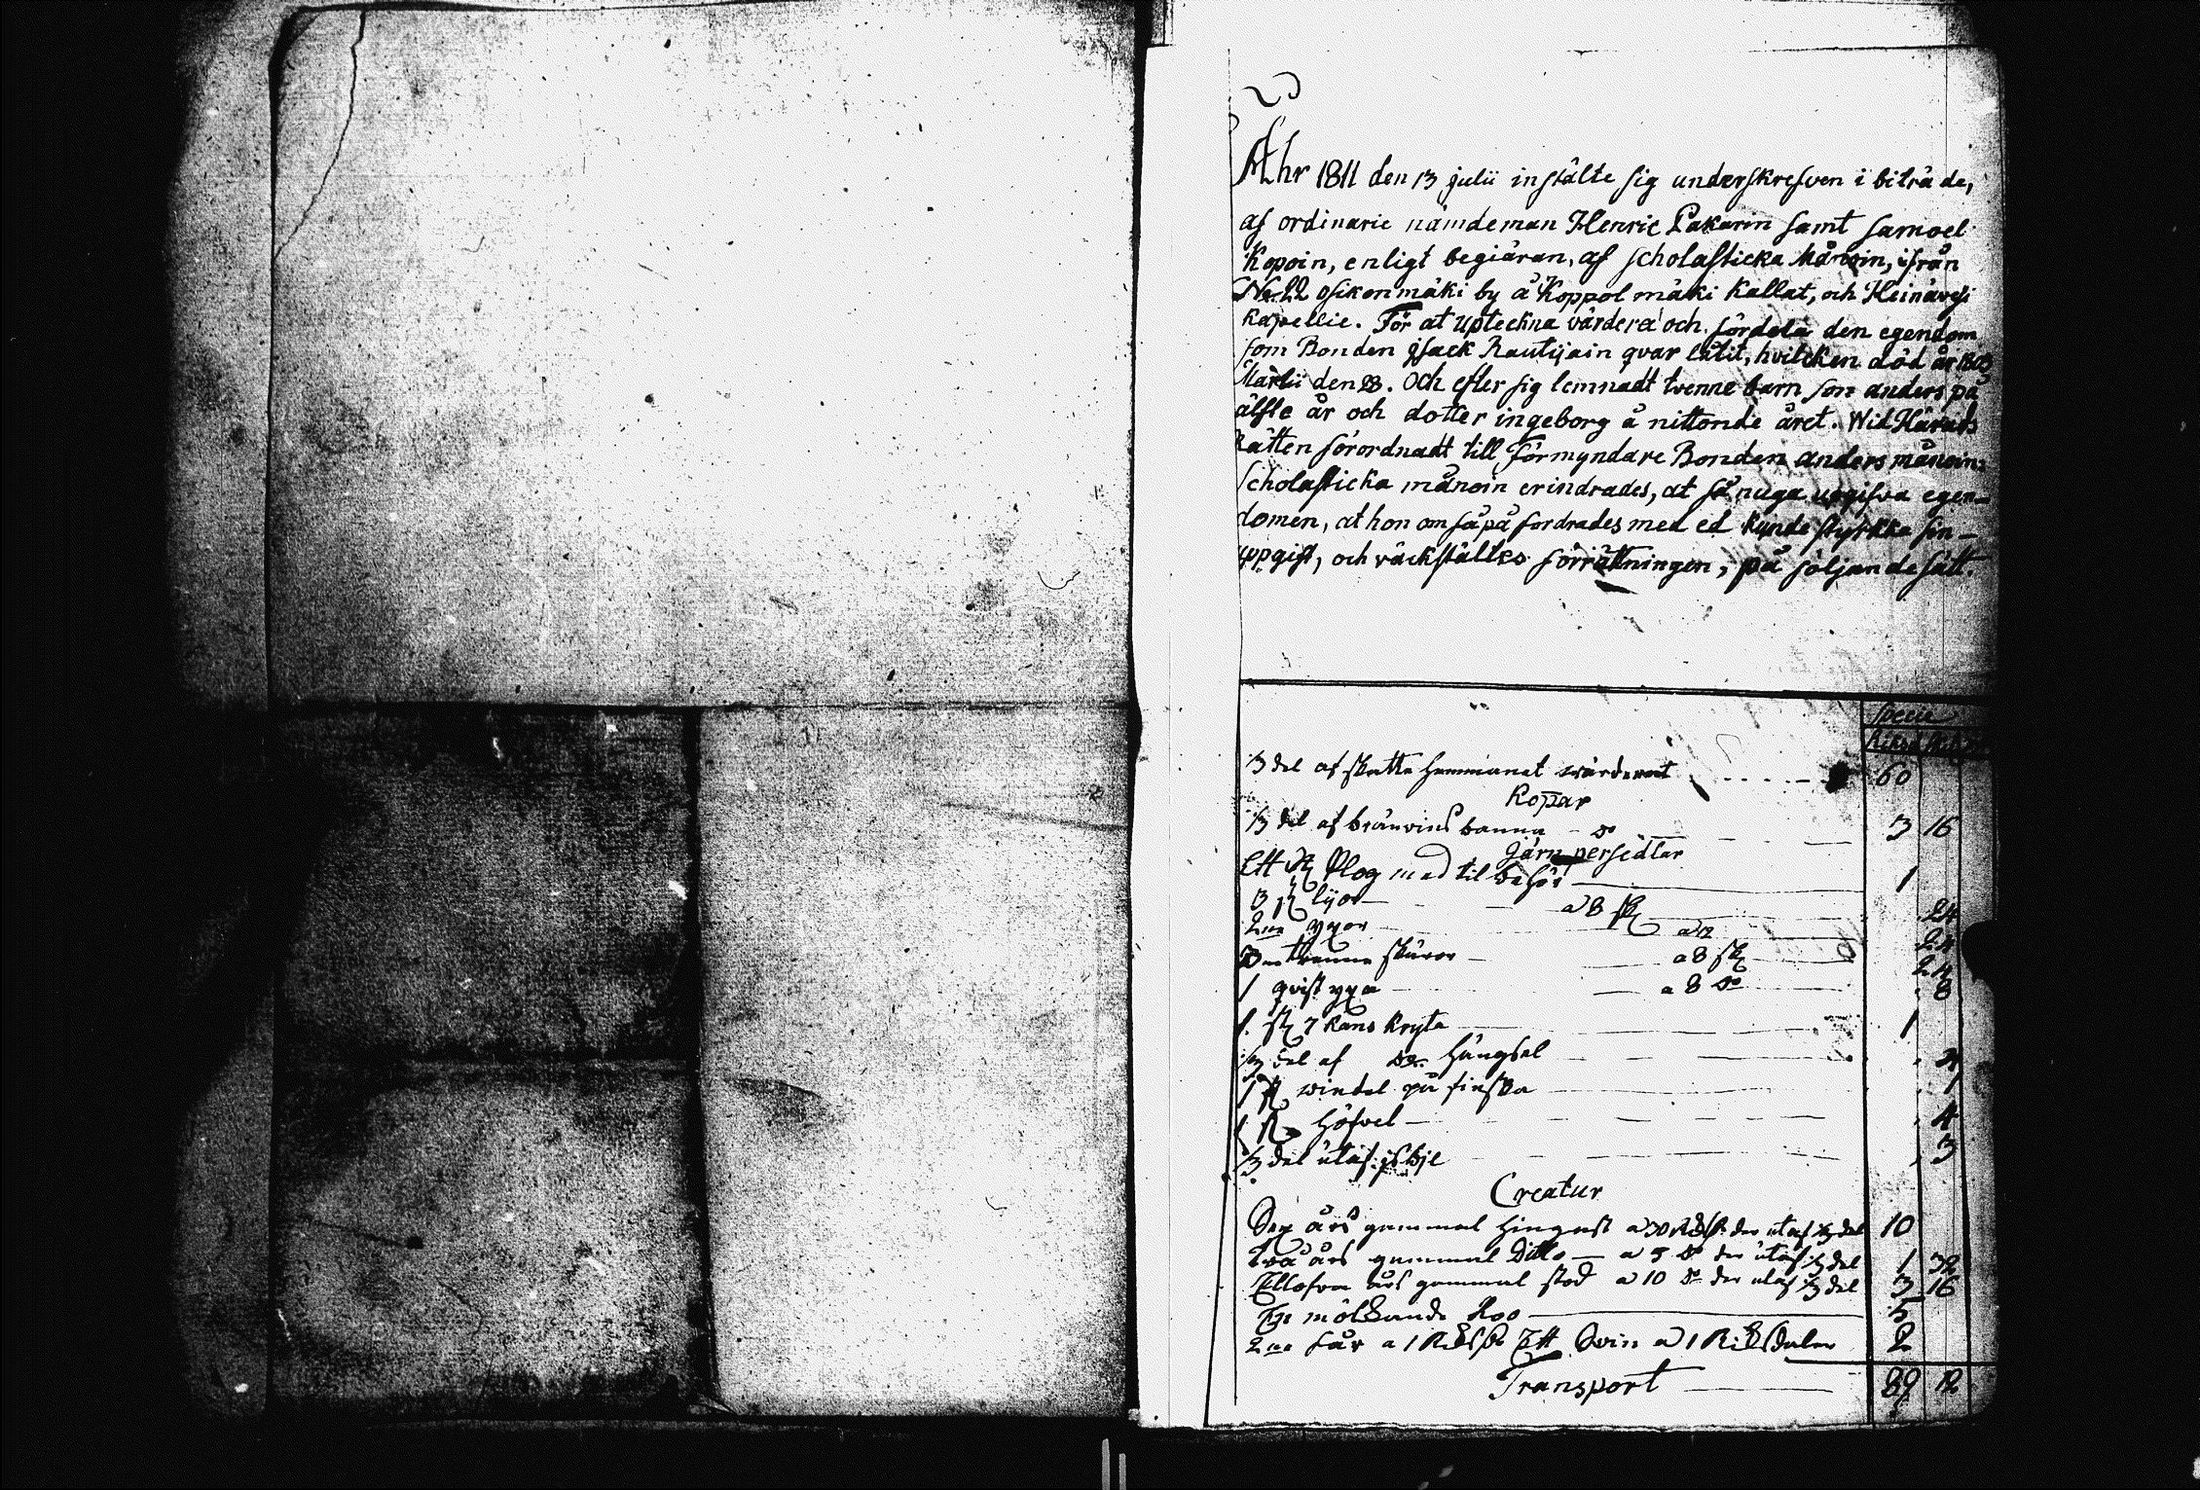 Åhr 1811 den 13 julii instälte sig underskrefven i biträde,
af ordinarie nämdeman Henric Pakarin samt samoel
Kopoin, enligt begiäran, af scholasticka Månoin, ifrån
No. 22 osikonmäki by å Koppolmäki Kallat, och Heinävesi
Kapellie. För at upteckna värdera och fördela den egendom
som Bonden jsack Rautijain qvar låtit, hvilcken död år
Martii den 28. Och efter sig lemnadt tvenne barn son anders på
älfte år och dotter ingeborg å nittonde året. Wid Härads
Rätten förordnadt till Förmyndare Bonden anders månoin.
Scholasticka månoin erindrades, at så nuga upgifva egen-
domen, at hon om så på fordrades med ed kunde styrkka sin
upgift, och värckstältes förrättningen, på följande sätt.
Specie
1/3 del af skatte hemmanet wärderat 60
Kopar
1/3 del af bränvins panna do 3 16
Järn persedlar
Ett st Plog med til behör 1
3 st lijor a 8 sk 24
2ne yxor a 12 24
3ne skäror a 8 sk 24
1 qvist yxa a 8 do 8
1. st 7 kans Kryta 1
1/3 del af Hängsel 4
1 st windel på finska 1
1 st Höfvel 4
1/3 del utaf isbje 3
Creatur
Sex års gammal Hingest a 30 der utaf 1/3 del 10
två års gammal Ditto a 5 do der utaf 1/3 del 1 32
Ellofva års gammal stod a 10 do der utaf 1/3 del 3 16
En mölkande Koo 5
2ne får a 1 Ett Svin a 1 Riksdaler 2
Transport 89 12